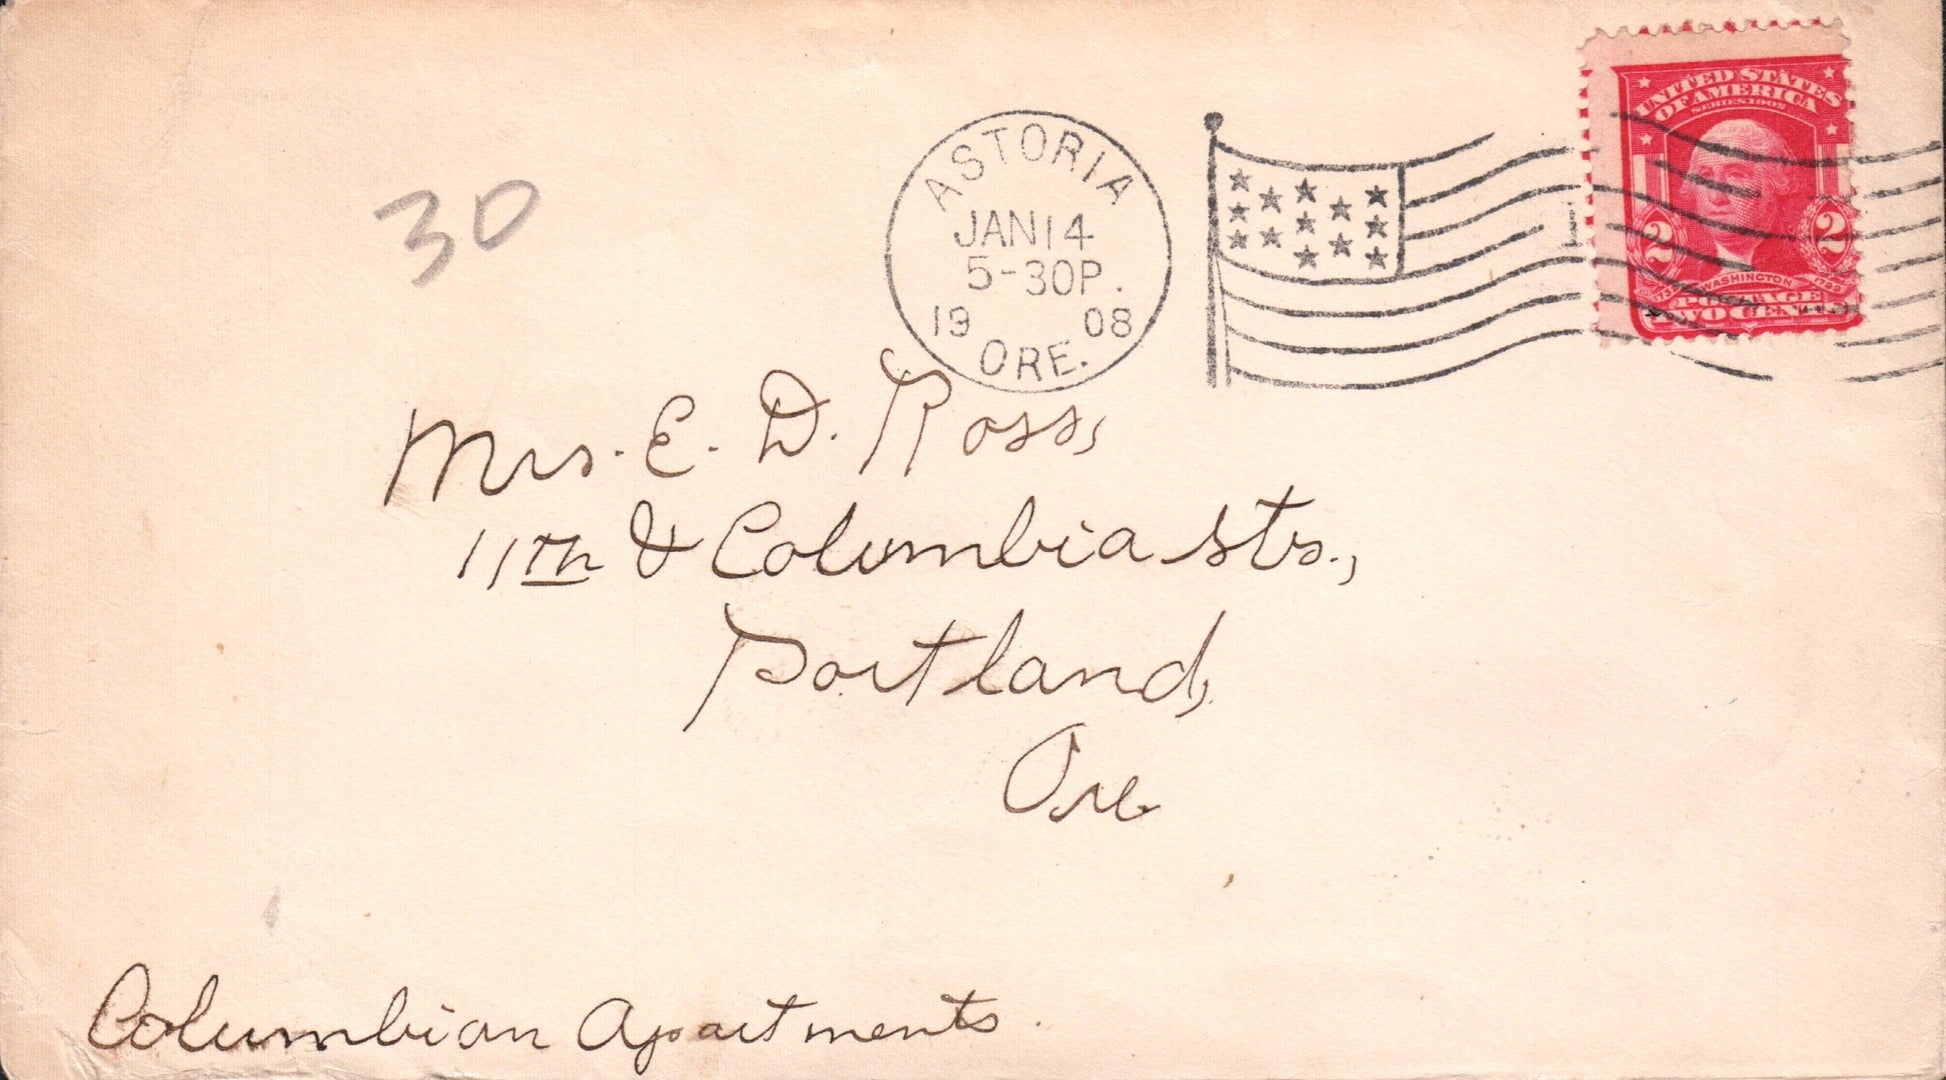 30
ASTORIA
JAN 14
5-30P.
19 08
ORE.
UNITED STATES
OF AMERICA
SERIES 1902
2 2
WASHINGTON 1799
POSTAGE
TWO CENTS
Mrs. E. D. Ross,
11th & Columbia Sts.,
Portland,
Ore
Columbian Apartments.